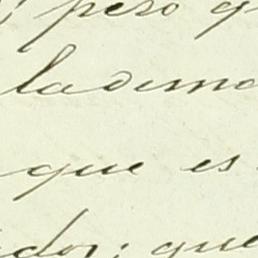 pero q
la dema
que es
dos; que